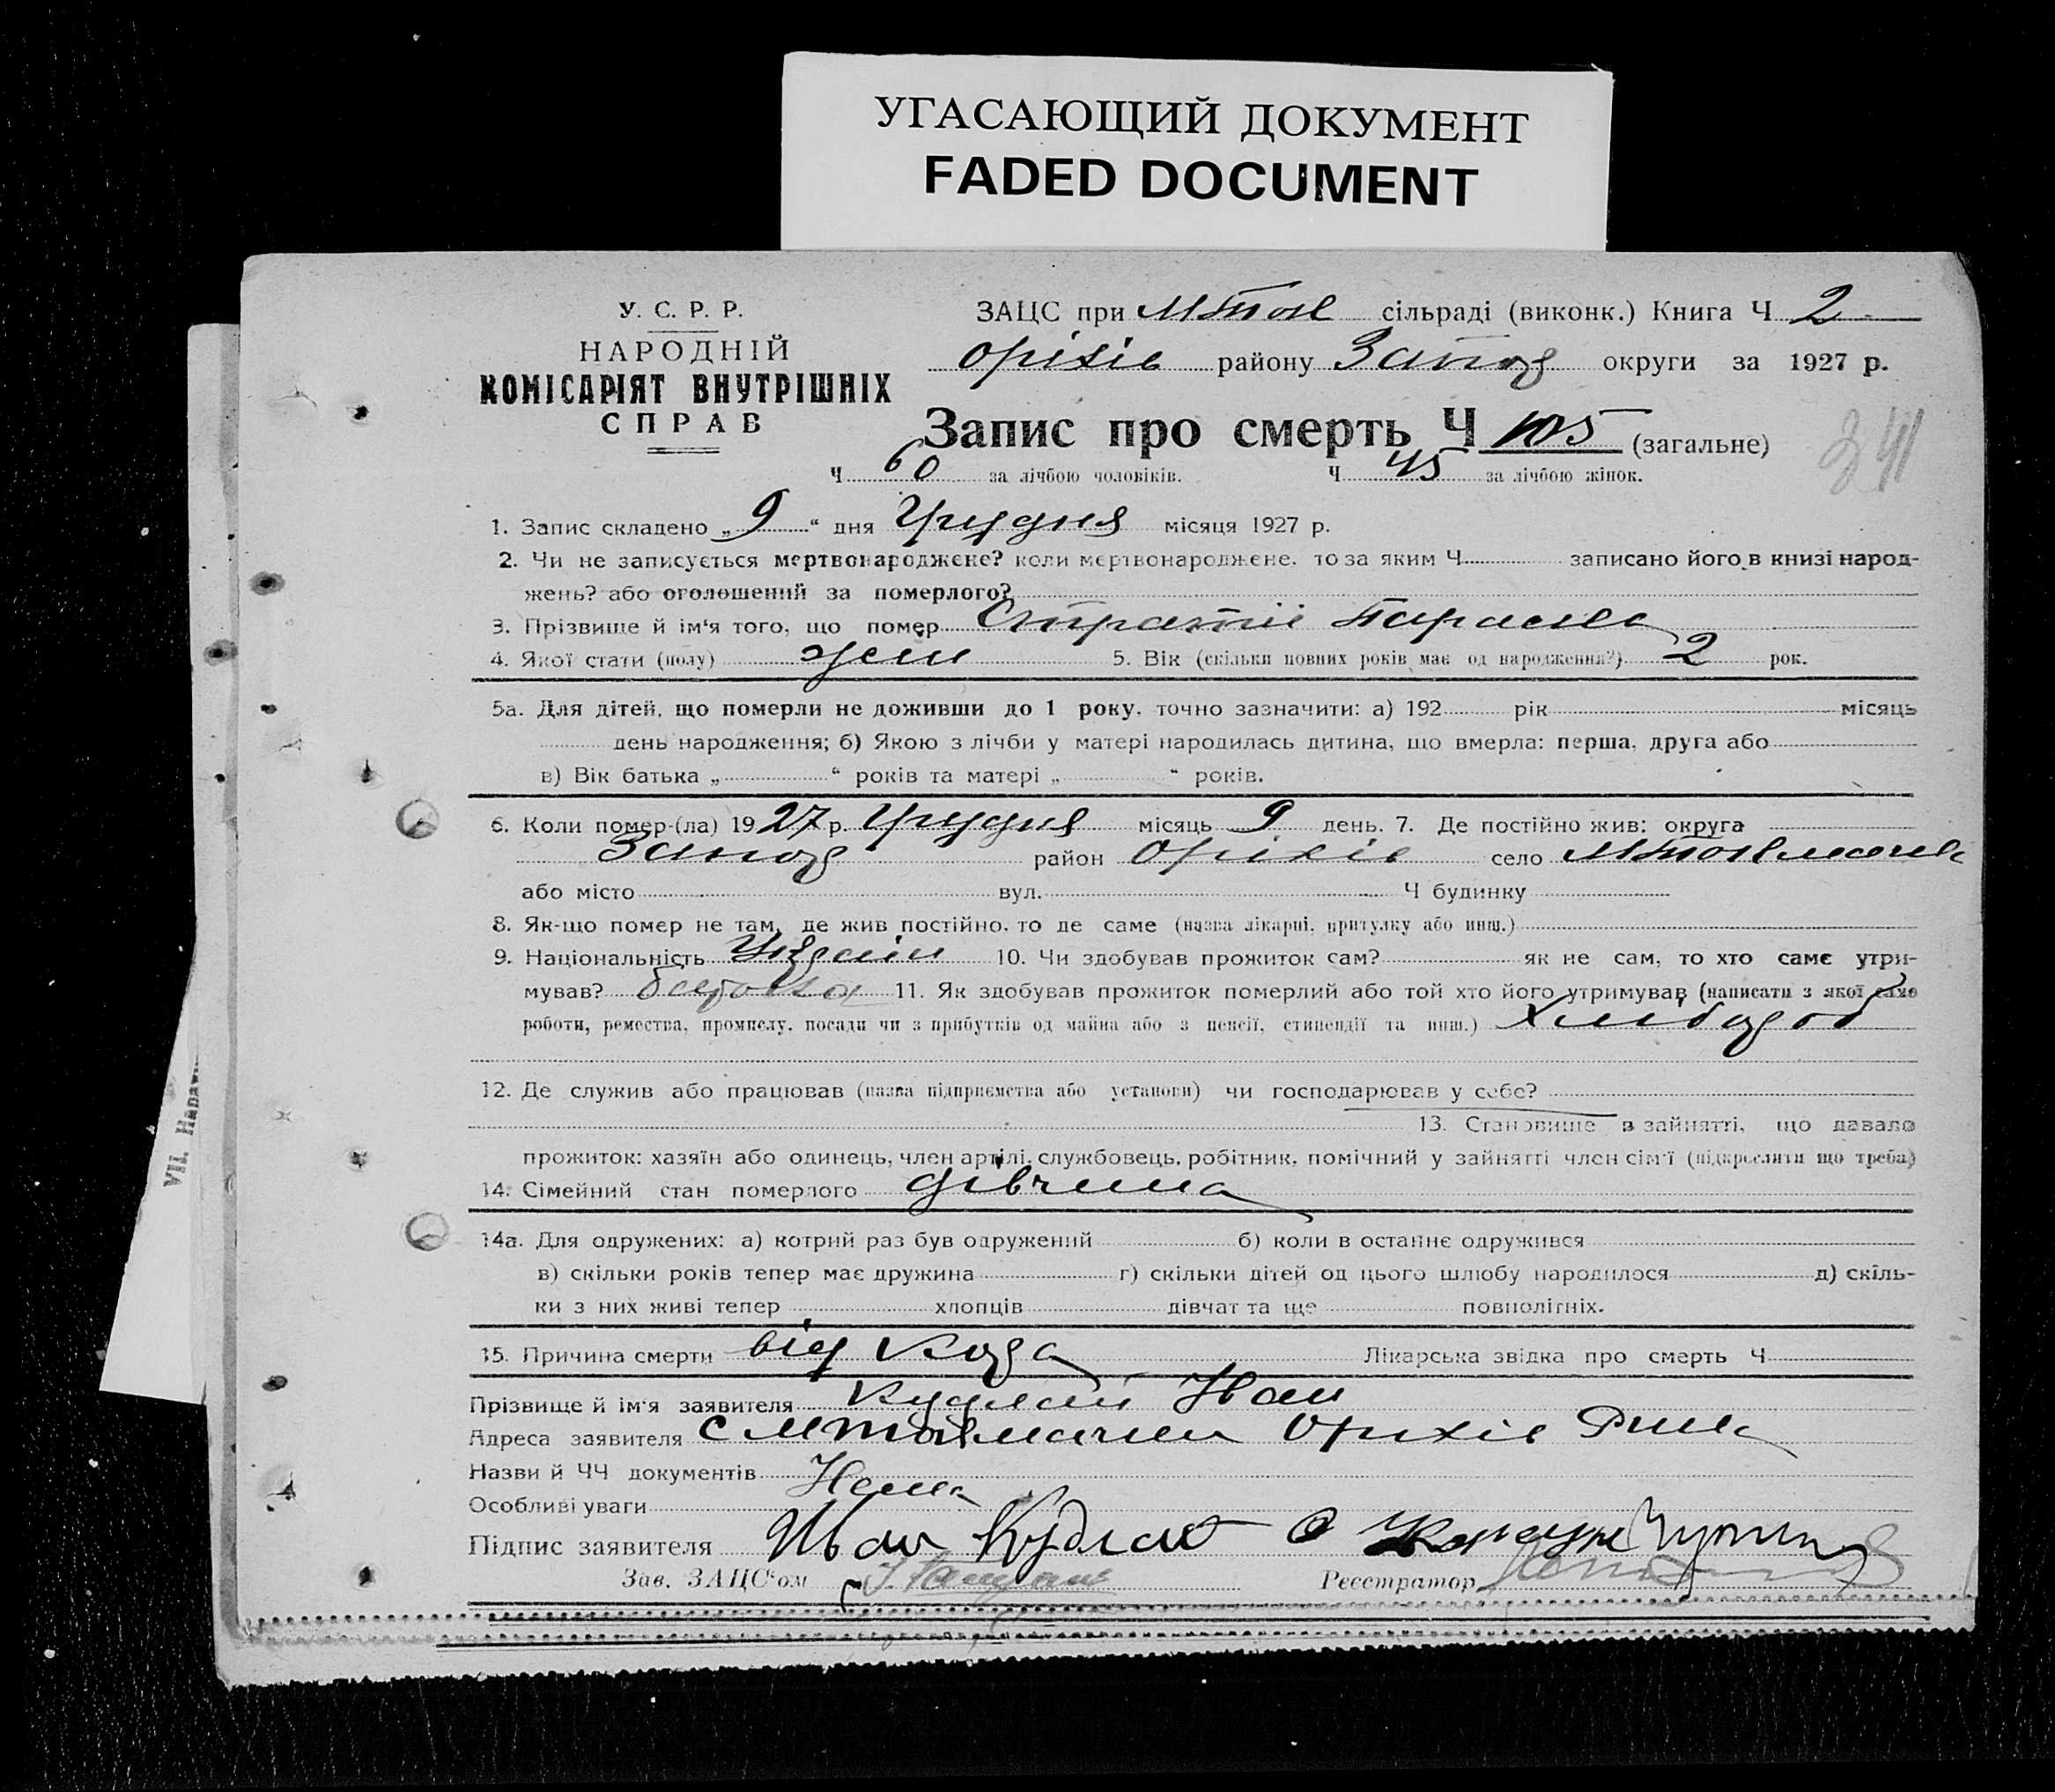 УГАСАЮЩИЙ ДОКУМЕНТ
FADED DOCUMENT
У. С. Р. Р.
НАРОДНІЙ
КОМІСАРІЯТ ВНУТРІШНІХ
СПРАВ
ЗАЦС при МТок сільраді (виконк.) Книга Ч 2
Оріхів району Запор округи за 1927 р.
Запис про смерть Ч 105 (загальне)
241
Ч 60 за лічбою чоловіків. Ч 45 за лічбою жінок.
1. Запис складено „ 9 “ дня Грудня місяця 1927 р.
2. Чи не записується мертвонароджене? коли мертвонароджене, то за яким Ч записано його в книзі народ-
жень? або оголошений за померлого?
3. Прізвище й ім'я того, що помер
4. Якої стати (полу) жен 5. Вік (скільки повних років має од народження?) 2 рок.
5а. Для дітей, що померли не доживши до 1 року, точно зазначити: а) 192 рік місяць
день народження; б) Якою з лічби у матері народилась дитина, що вмерла: перша, друга або
в) Вік батька „ “ років та матері „ “ років.
6. Коли помер-(ла) 1927 р. Грудня місяць 9 день. 7. Де постійно жив: округа
Запор район Оріхів село МТокмачка
або місто вул. Ч будинку
8. Як-що помер не там, де жив постійно, то де саме (назва лікарні, притулку або инш.)
9. Національність Україн 10. Чи здобував прожиток сам? як не сам, то хто саме утри-
мував? батько 11. Як здобував прожиток померлий або той хто його утримував (написати з якої саме
роботи, ремества, промислу, посади чи з прибутків од майна або з пенсії, стипендії та инш.) Хлібороб
12. Де служив або працював (назва підприємства або установи) чи господарював у себе?
13. Становище в зайнятті, що давало
прожиток: хазяїн або одинець, член артілі, службовець, робітник, помічний у зайнятті член сім'ї (підкреслити що треба)
14. Сімейний стан померлого дівчина
14а. Для одружених: а) котрий раз був одружений б) коли в останнє одружився
в) скільки років тепер має дружина г) скільки дітей од цього шлюбу народилося д) скіль-
ки з них живі тепер хлопців дівчат та ще повнолітніх.
15. Причина смерти від Кора Лікарська звідка про смерть Ч
Прізвище й ім'я заявителя Кудлай Іван
Адреса заявителя с МТокмачки Оріхів
Назви й ЧЧ документів Нема
Особливі уваги
Підпис заявителя Иван Кудлай
Зав. ЗАЦС'ом Реєстратор
VII. Нар